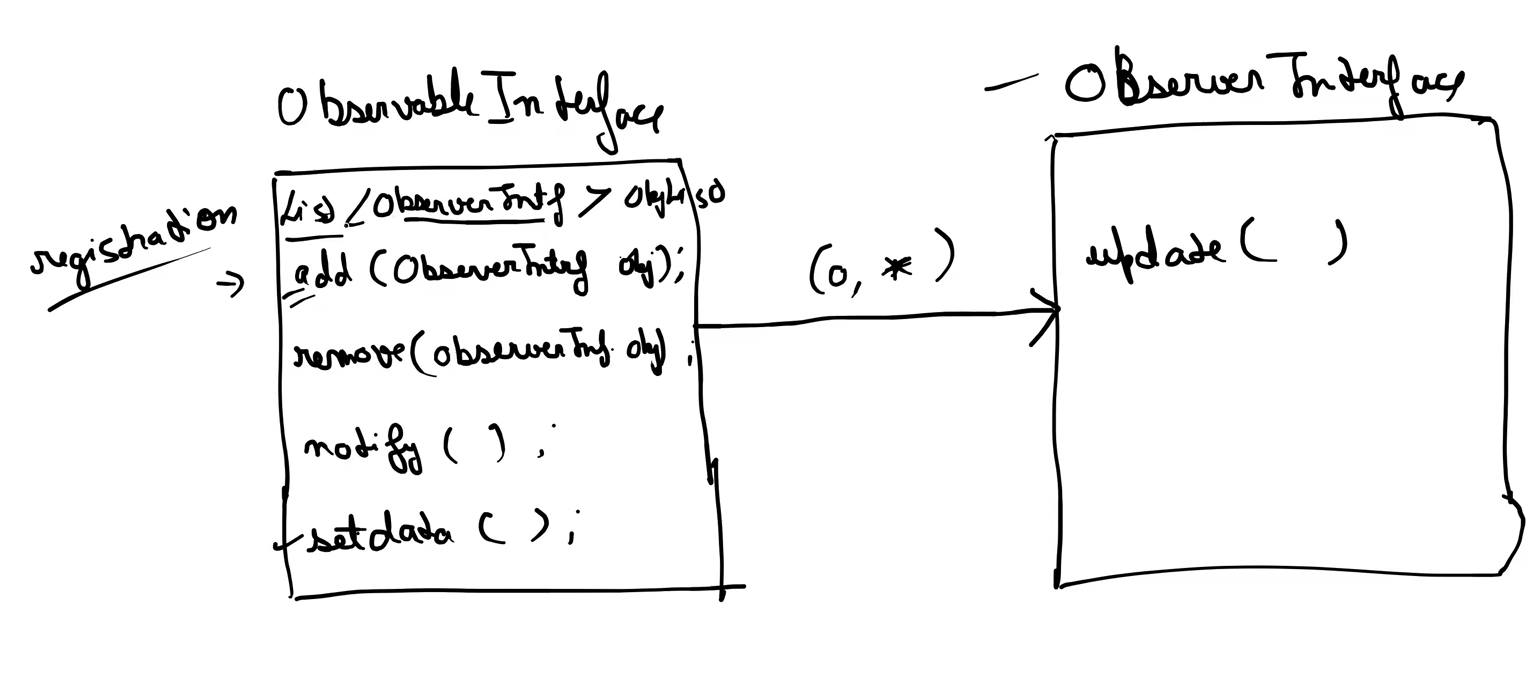 ObservableInterface
List <ObserverIntf > ObjList
registration →
add (ObserverIntrf obj);
remove(observerInf. obj) ;
notify ( ) ;
setdata ( ) ;
(0, * )
— ObserverInterface
update ( )